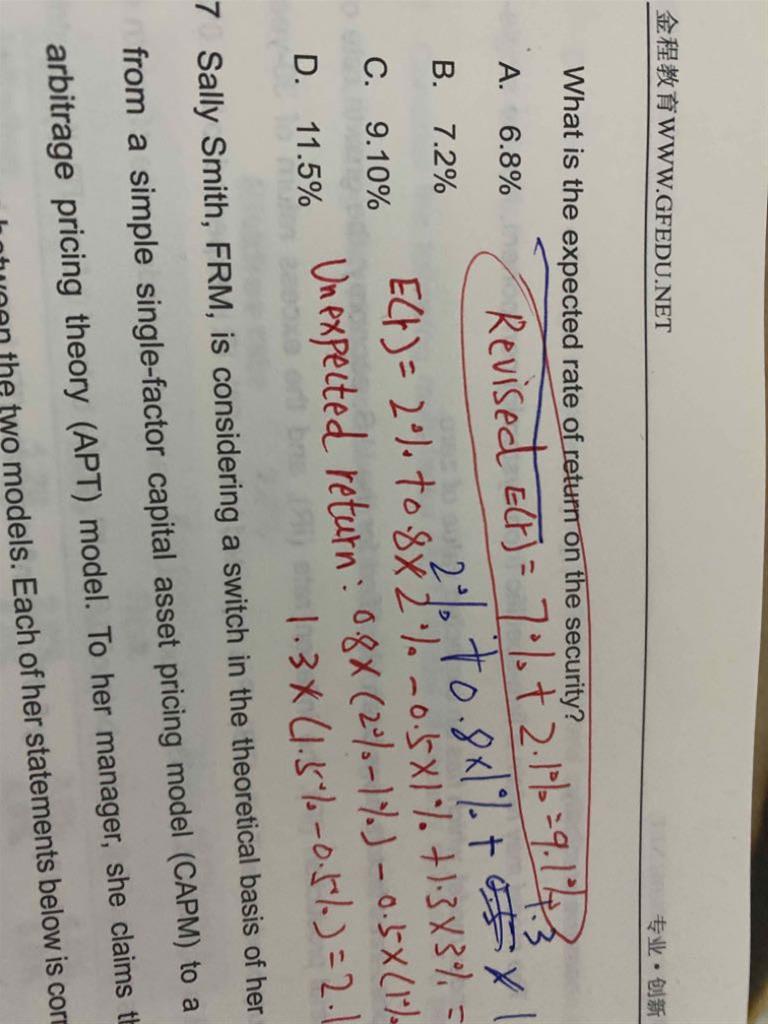 金程教育 WWW.GFEDU.NET
专业·创新
What is the expected rate of return on the security?
A. 6.8%
Revised E(r) = 7% + 2.1% = 9.1%
B. 7.2%
2% + 0.8×1% + 1.3 ×
C. 9.10%
E(r) = 2% + 0.8×2% - 0.5×1% + 1.3×3% =
D. 11.5%
Unexpected return: 0.8×(2%-1%) - 0.5×(1%
1.3×(1.5%-0.5%) = 2.1
7 Sally Smith, FRM, is considering a switch in the theoretical basis of her
from a simple single-factor capital asset pricing model (CAPM) to a
arbitrage pricing theory (APT) model. To her manager, she claims
between the two models. Each of her statements below is